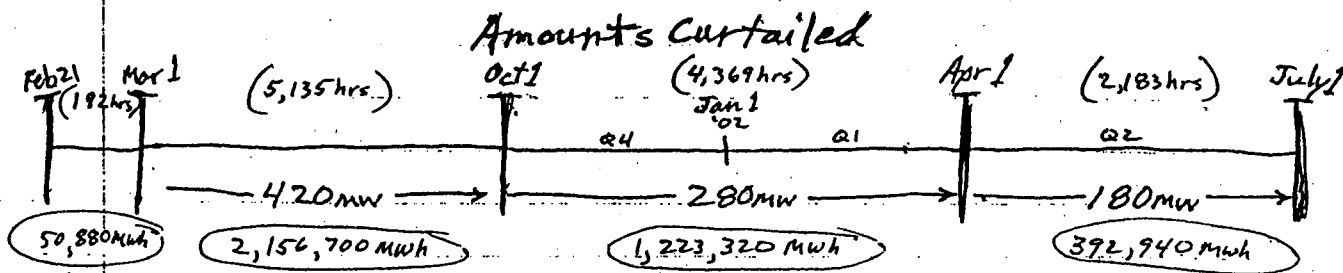 Amounts Curtailed
Feb 21 Mar 1 (5,135 hrs) Oct 1 (4,369 hrs) Apr 1 (2,183 hrs) July 1
(192 hrs) Jan 1
'02
Q4 Q1 Q2
420 mw 280 mw 180 mw
50,880 mwh 2,156,700 mwh 1,223,320 mwh 392,940 mwh